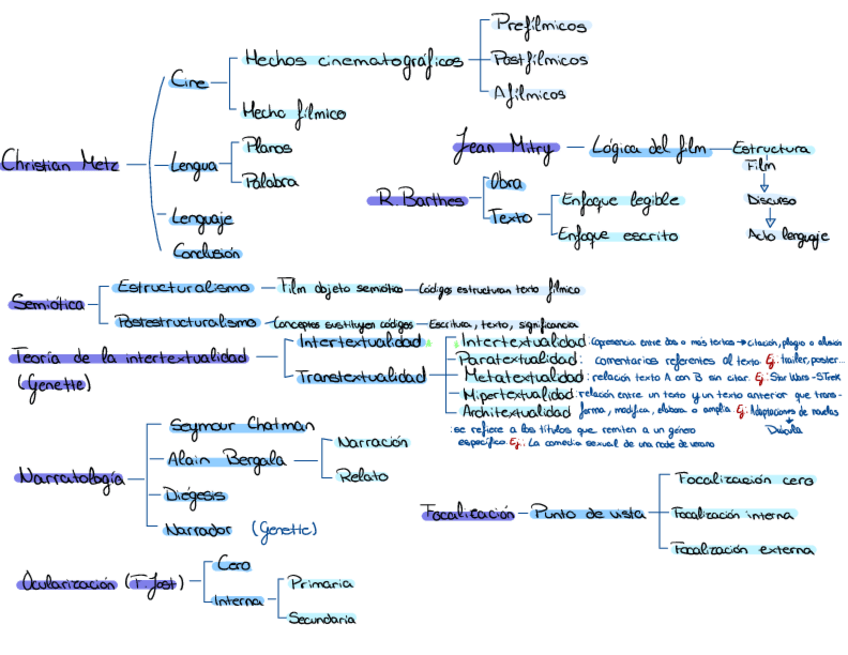 Christian Metz
Cine
Hechos cinematográficos
Prefílmicos
Postfílmicos
Afílmicos
Hecho fílmico
Lengua
Planos
Palabra
Lenguaje
Conclusión
Jean Mitry — Lógica del film — Estructura
Film
Discurso
Acto lenguaje
R. Barthes
Obra
Texto
Enfoque legible
Enfoque escrito
Semiótica
Estructuralismo — Film objeto semiótico — Códigos estructuran texto fílmico
Postestructuralismo — Conceptos sustituyen códigos — Escritura, texto, significancia
Teoría de la intertextualidad
(Genette)
Intertextualidad
Transtextualidad
Intertextualidad: copresencia entre dos o más textos → citación, plagio o alusión
Paratextualidad: comentarios referentes al texto. Ej: trailer, poster...
Metatextualidad: relación texto A con B sin citar. Ej: Star Wars - STrek
Hipertextualidad: relación entre un texto y un texto anterior que trans-
forma, modifica, elabora o amplía. Ej: Adaptaciones de novelas
Drácula
Architextualidad
: se refiere a los títulos que remiten a un género
específico. Ej: La comedia sexual de una noche de verano
Narratología
Seymour Chatman
Alain Bergala
Narración
Relato
Diégesis
Narrador (Genette)
Focalización — Punto de vista
Focalización cero
Focalización interna
Focalización externa
Ocularización (F. Jost)
Cero
Interna
Primaria
Secundaria